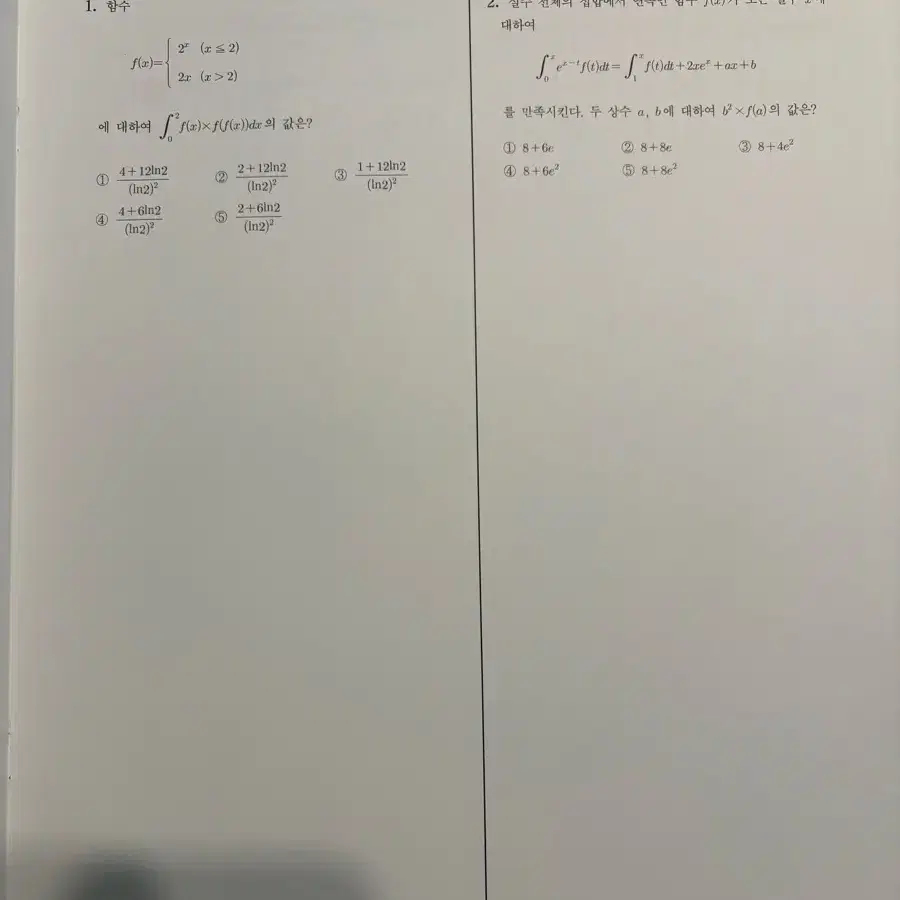 1. 함수
f(x)={ 2^x (x≦2)
2x (x>2)
에 대하여 ∫_0^2 f(x)×f(f(x))dx의 값은?
① (4+12ln2)/(ln2)² ② (2+12ln2)/(ln2)² ③ (1+12ln2)/(ln2)²
④ (4+6ln2)/(ln2)² ⑤ (2+6ln2)/(ln2)²
2. 실수 전체의 집합에서 연속인 함수 f(x)가 모든 실수 x에
대하여
∫_0^x e^{x-t}f(t)dt=∫_1^x f(t)dt+2xe^x+ax+b
를 만족시킨다. 두 상수 a, b에 대하여 b²×f(a)의 값은?
① 8+6e ② 8+8e ③ 8+4e²
④ 8+6e² ⑤ 8+8e²